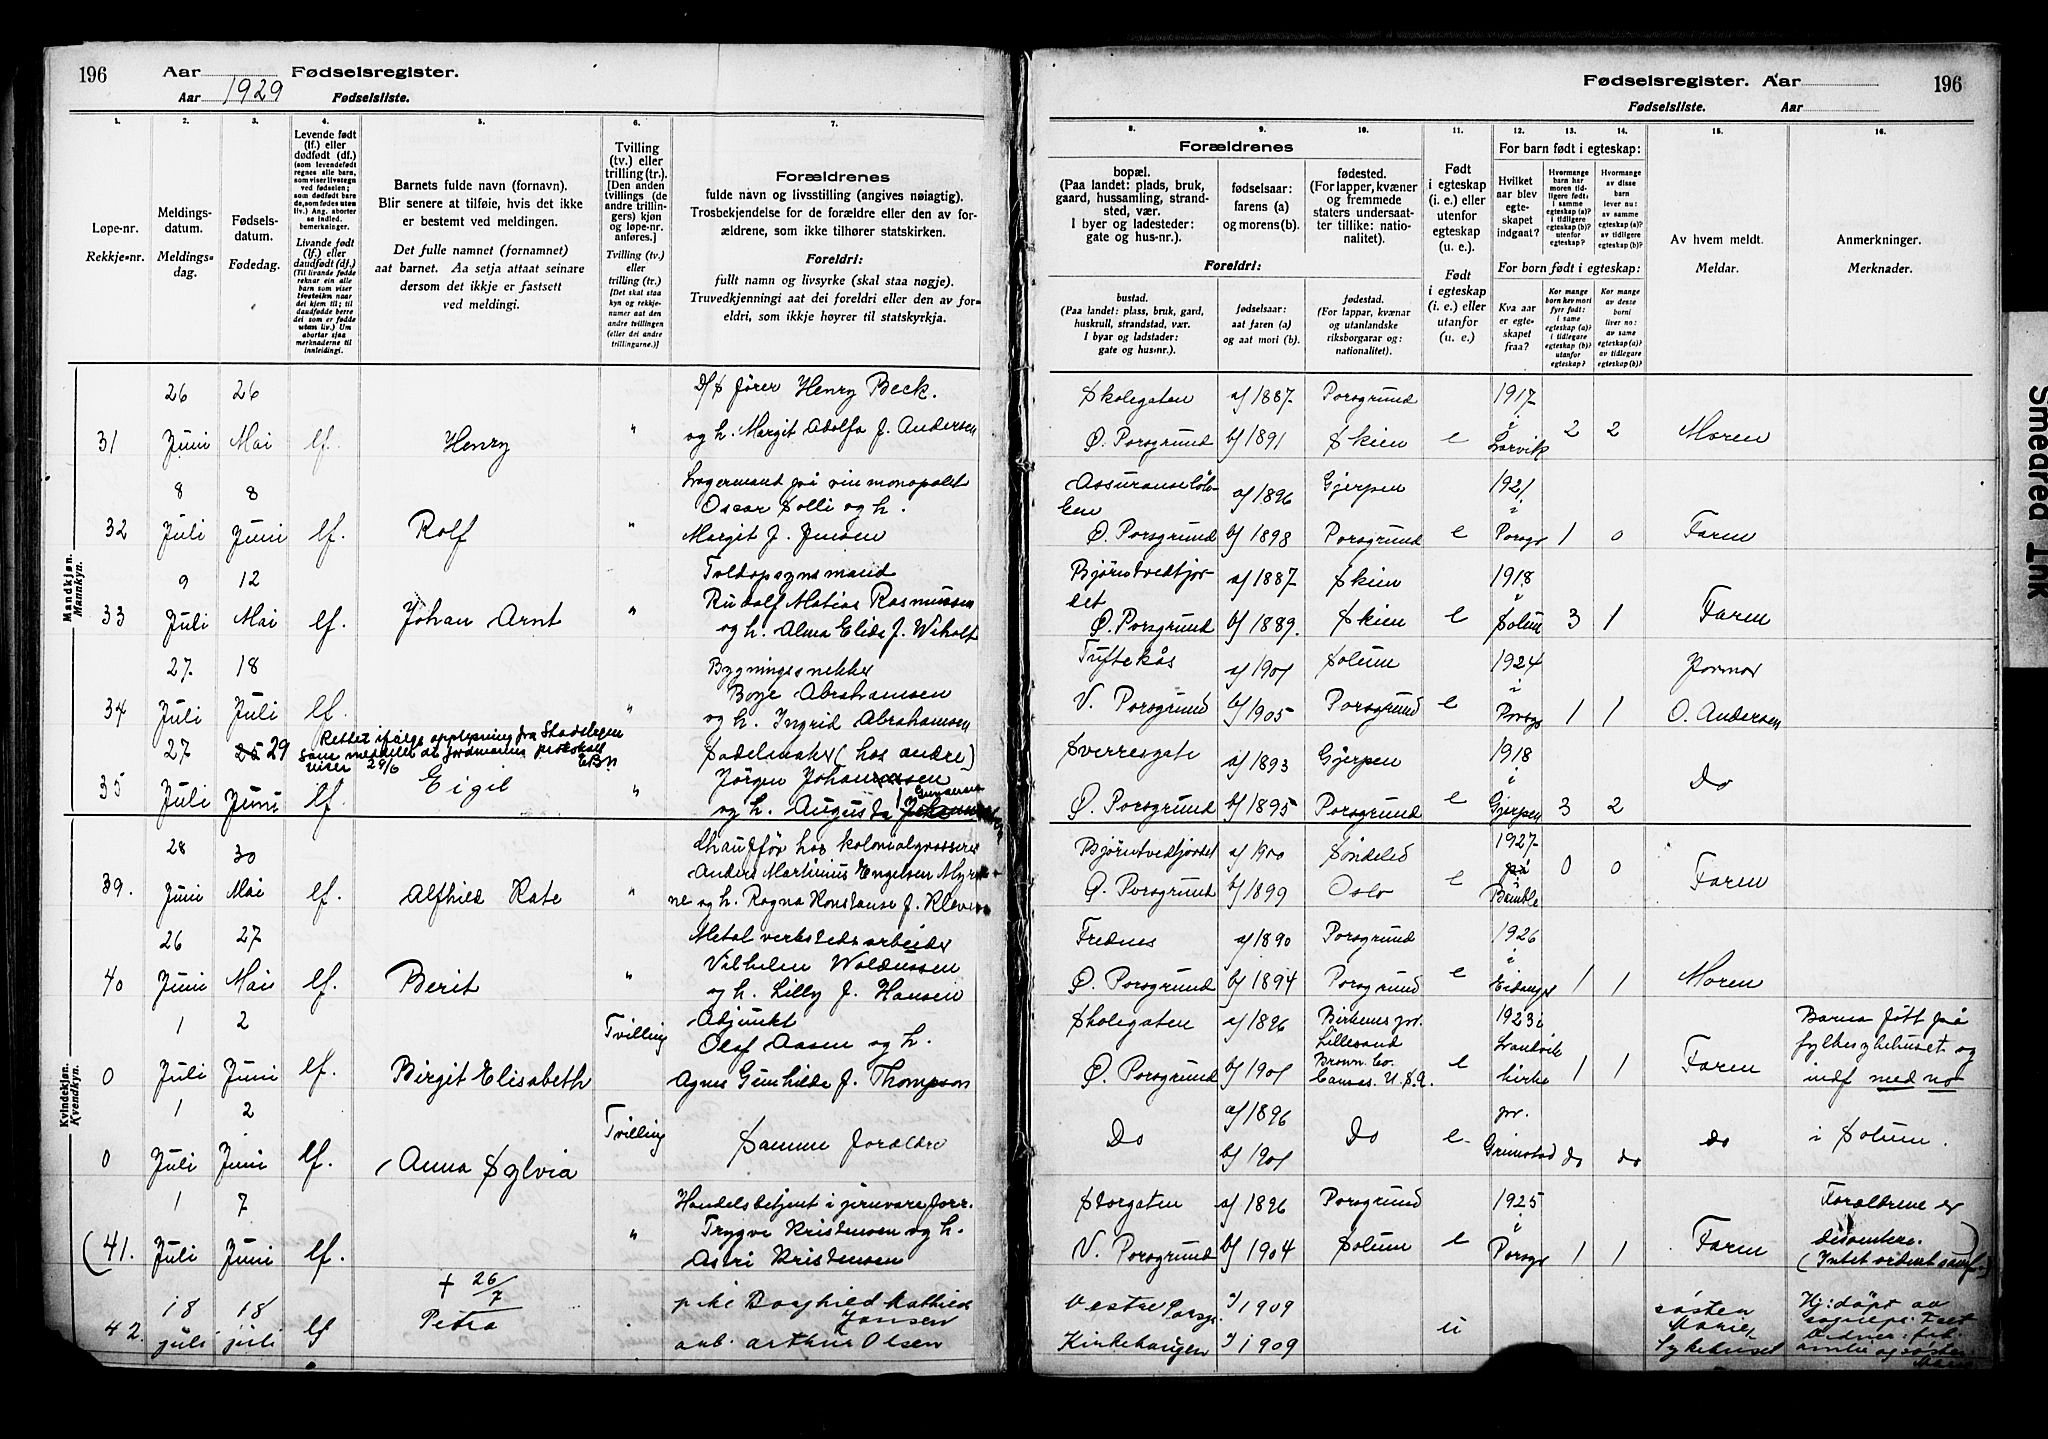 196 Aar Fødselsregister.
Aar 1929 Fødselsliste.
Fødselsregister. Aar 196
Fødselsliste. Aar
1. 2. 3. 4. 5. 6. 7.
Løpe-nr.
Rekkje-nr.
Meldings-
datum.
Meldings-
dag.
Fødsels-
datum.
Fødedag.
Levende født
(lf.) eller
dødfødt (df.)
(som levendefødt
regnes alle barn,
som viser livstegn
ved fødselen;
som dødfødt bare
de, som fødes uten
liv.) Ang. aborter
se indled.
bemerkninger.
Livande født
(lf.) eller
daudfødt (df.)
(Til livande fødde
reknar ein alle
born som viser
livsteikn naar
dei kjem til; til
daudfødde berre
dei som er fødde
utan liv.) Um
abortar sjaa
merknaderne til
innleidingi.
Barnets fulde navn (fornavn).
Blir senere at tilføie, hvis det ikke
er bestemt ved meldingen.
Det fulle namnet (fornamnet)
aat barnet. Aa setja attaat seinare
dersom det ikkje er fastsett
ved meldingi.
Tvilling
(tv.) eller
trilling (tr.).
[Den anden
tvillings (de
andre trillin-
gers) kjøn
og løpe-nr.
anføres.]
Tvilling (tv.)
eller
trilling (tr.)
[Det skal staa
kyn og rekkje-
numer aat den
andre tvillingen
(eller dei andre
trillingarne.)]
Forældrenes
fulde navn og livsstilling (angives nøiagtig).
Trosbekjendelse for de forældre eller den av for-
ældrene, som ikke tilhører statskirken.
Foreldri:
fullt namn og livsyrke (skal staa nøgje).
Truvedkjenningi aat dei foreldri eller den av for-
eldri, som ikkje høyrer til statskyrkja.
8. 9. 10. 11. 12. 13. 14. 15. 16.
Forældrenes
bopæl.
(Paa landet: plads, bruk,
gaard, hussamling, strand-
sted, vær.
I byer og ladesteder:
gate og hus-nr.).
fødselsaar:
farens (a)
og morens (b).
fødested.
(For lapper, kvæner
og fremmede
staters undersaat-
ter tillike: natio-
nalitet).
Foreldri:
bustad.
(Paa landet: plass, bruk, gard,
huskrull, strandstad, vær.
I byar og ladstader:
gate og hus-nr.).
fødselsaar:
aat faren (a)
og aat mori (b).
fødestad.
(For lappar, kvænar
og utanlandske
riksborgarar og:
nationalitet).
Født
i egteskap
(i. e.) eller
utenfor
egteskap
(u. e.).
Født
i egteskap
(i. e.) eller
utanfor
(u. e.).
For barn født i egteskap:
Hvilket
aar blev
egte-
skapet
indgaat?
Hvormange
barn har
moren tid-
ligere født:
i samme
egteskap (a)?
i tidligere
egteskap (b)?
utenfor
egteskap?
Hvormange
av disse
barn
lever nu:
av samme
egteskap (a)?
av tidligere
egteskap (b)?
For born født i egteskap:
Kva aar
er egte-
skapet
fraa?
Kor mange
born hev mori
fyrr født:
i same
egteskap (a)?
i tidlegare
egteskap (b)?
utanfor
egteskap?
Kor mange
av deste
borni
liver no:
av same
egteskap (a)?
av tidlegare
egteskap (b)?
Av hvem meldt.
Meldar.
Anmerkninger.
Merknader.
Mandkjøn.
Mannkyn.
26 26 D/S fører Henry Beck. Skolegaten a/ 1887 Porsgrund 1917
31 Juni Mai lf. Henry " og h. Margit Adolfa f. Andersen Ø. Porsgrund b/ 1891 Skien e i Larvik 2 2 Moren
8 8 Lagermand på vinmonopolet Assuranse a/ 1896 Gjerpen 1921
Oscar Solli og h.
32 Juli Juni lf. Rolf " Margit f. Jensen Ø. Porsgrund b/ 1898 Porsgrund e i Porsgr 1 0 Faren
9 12 Toldopsynsmand Bjørntvedtjor- a/ 1887 Skien 1918
Rudolf Matias Rasmussen det
33 Juli Mai lf. Johan Arnt " og h. Alma Elide f. Ø. Porsgrund b/ 1889. Skien e i Solum 3 1 Faren
27. 18 Bygningssnekker Tuftekås a/ 1901 Solum 1924 Jormor
Borje Abrahamsen
34 Juli Juli lf. " og h. Ingrid Abrahamsen V. Porsgrund b/ 1905 Porsgrund e i Porsgr 1 1 O. Andersen
Rettet ifølge oplysning fra Stadslegen
som meddeler at jordmorens protokoll
viser 29/6 EBn
27 25 29 Sadelmaker (hos andre) Sverresgate a/ 1893 Gjerpen 1918
Jørgen Johannessen
35 Juli Juni lf. Eigil " og h. Augusta Ø. Porsgrund b/ 1895 Porsgrund e i Gjerpen 3 2 Do
Kvindekjøn.
Kvendkyn.
28 30 Chauffør hos kolonialgrosserer Bjørntvedtjordet a/ 1900 Søndeled 1927
Anders Martinius Engelsen Myre
39. Juni Mai lf. Alfhild Kate " ne og h. Ragna Konstanse f. Kleven Ø. Porsgrund b/ 1899 Oslo e på Bamble 0 0 Faren
26 27 Metalverkstedsarbeider Frednes a/ 1890 Porsgrund 1926
Vilhelm Waldussen
40 Juni Mai lf. Berit " og h. Lilly f. Hansen Ø. Porsgrund b/ 1894 Porsgrund e i Eidanger 1 1 Moren
1 2 Tvilling Adjunkt Skolegaten a/ 1896 Birkenes pr. 1923 i Barna født på
Olaf Aasen og h. Lillesand Landvik fylkesykehuset og
0 Juli Juni lf. Birgit Elisabeth Agnes Gunhilde f. Thompson Ø. Porsgrund b/ 1901 Brown Co. Cansas. U.S.A. e kirke 1 1 Faren indf med no
1 2 Tvilling a/ 1896 pr.
0 Juli Juni lf. Anna Sylvia Samme forældre Do b/ 1901 Do e Grimstad do do do i Solum.
1 7 Handelsbetjent i jernvareforr. Storgaten a/ 1896 Porsgrund 1925 Forældrene er
Trygve Kristensen og h.
(41. Juli Juni lf. " Astri Kristensen V. Porsgrund b/ 1904 Solum e i Porsgr 1 1 Faren dissentere.
(Intet ordent samf.)
+ 26/7
18 18 pike Borghild Mathilde Vestre Porsgr. 1909 søster Hj: døpt av
Jansen
42. juli juli lf Petra anb. Arthur Olsen Kirkehaugen 1909 u Marie, Sykehuset
Smeared Ink